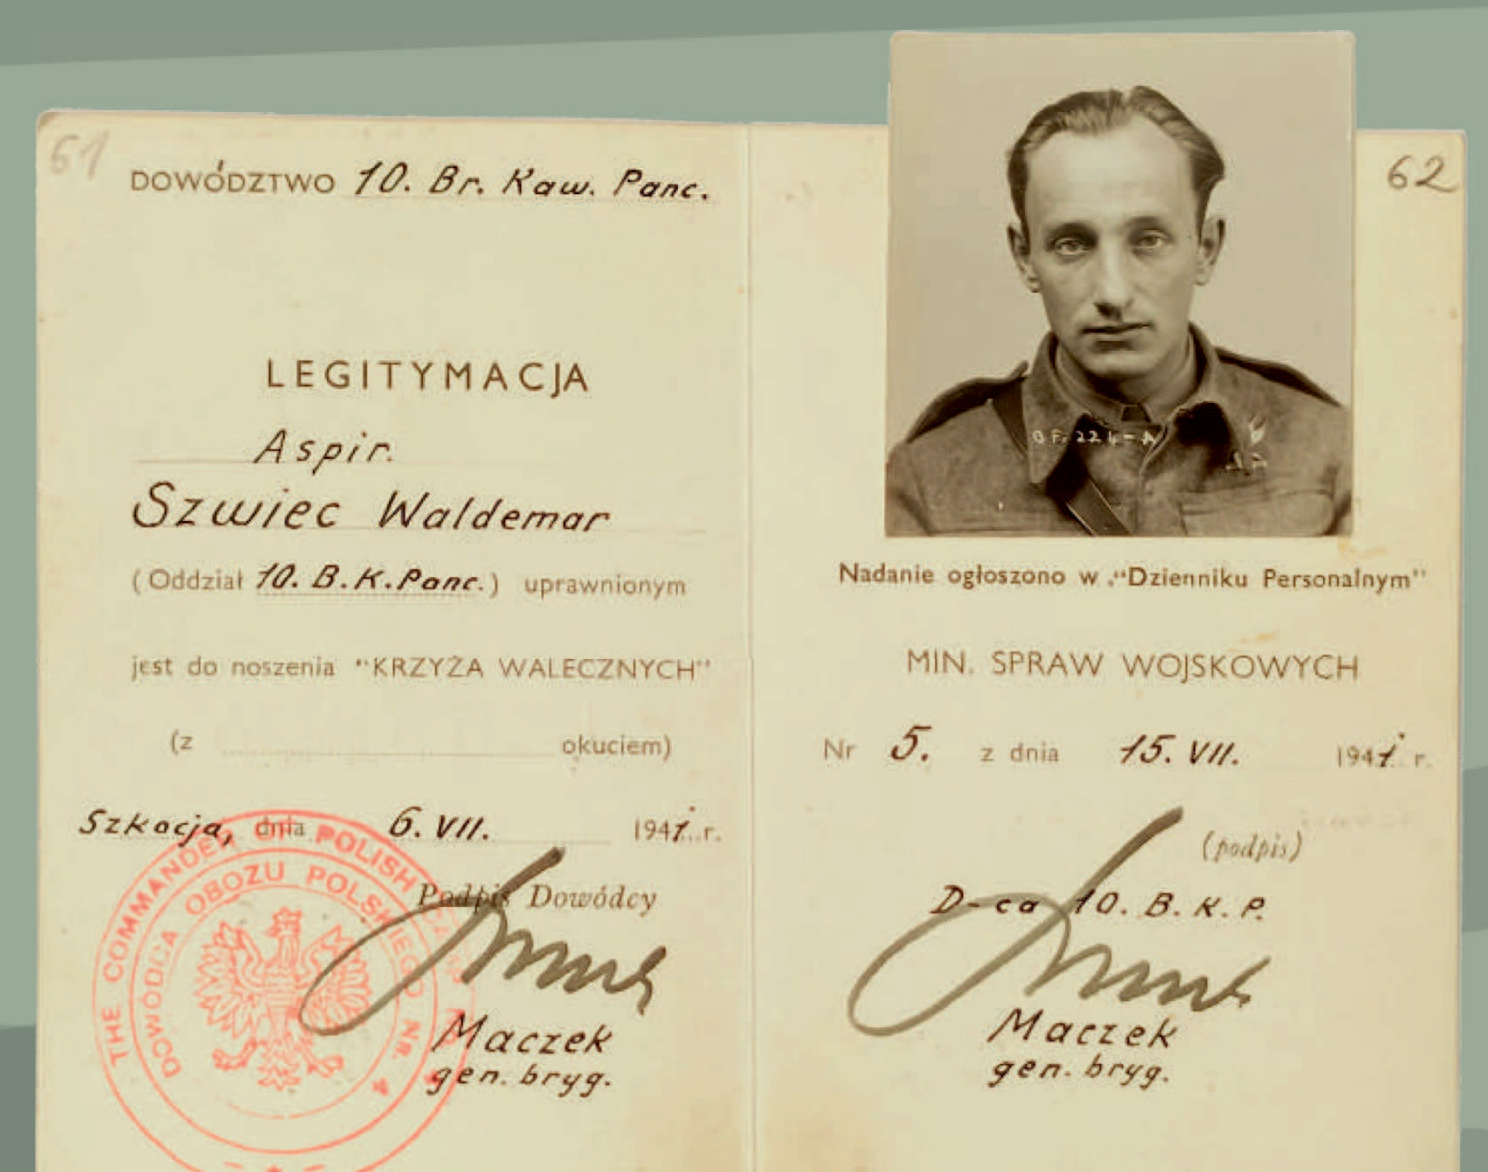 61
DOWÓDZTWO 10. Br. Kaw. Panc.
LEGITYMACJA
Aspir.
Szwiec Waldemar
(Oddział 10. B.K.Panc.) uprawnionym
jest do noszenia "KRZYŻA WALECZNYCH"
(z okuciem)
Szkocja, dnia 6. VII. 1941. r.
Podpis Dowódcy
Maczek
gen. bryg.
THE COMMANDER OF POLISH
DOWÓDCA OBOZU POLSKIEGO NR. 4
62
Nadanie ogłoszono w "Dzienniku Personalnym"
MIN. SPRAW WOJSKOWYCH
Nr 5. z dnia 15. VII. 1941. r.
(podpis)
D-ca 10. B. K. P.
Maczek
gen. bryg.